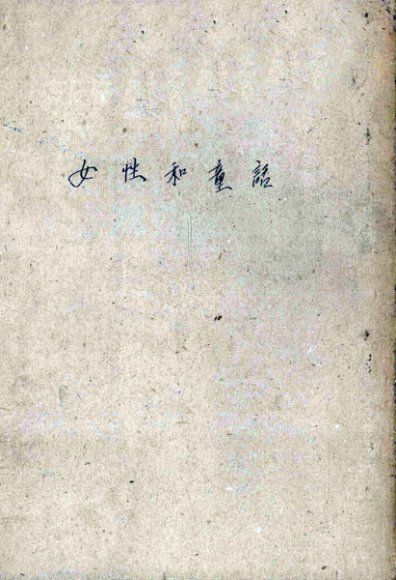 女性和童話